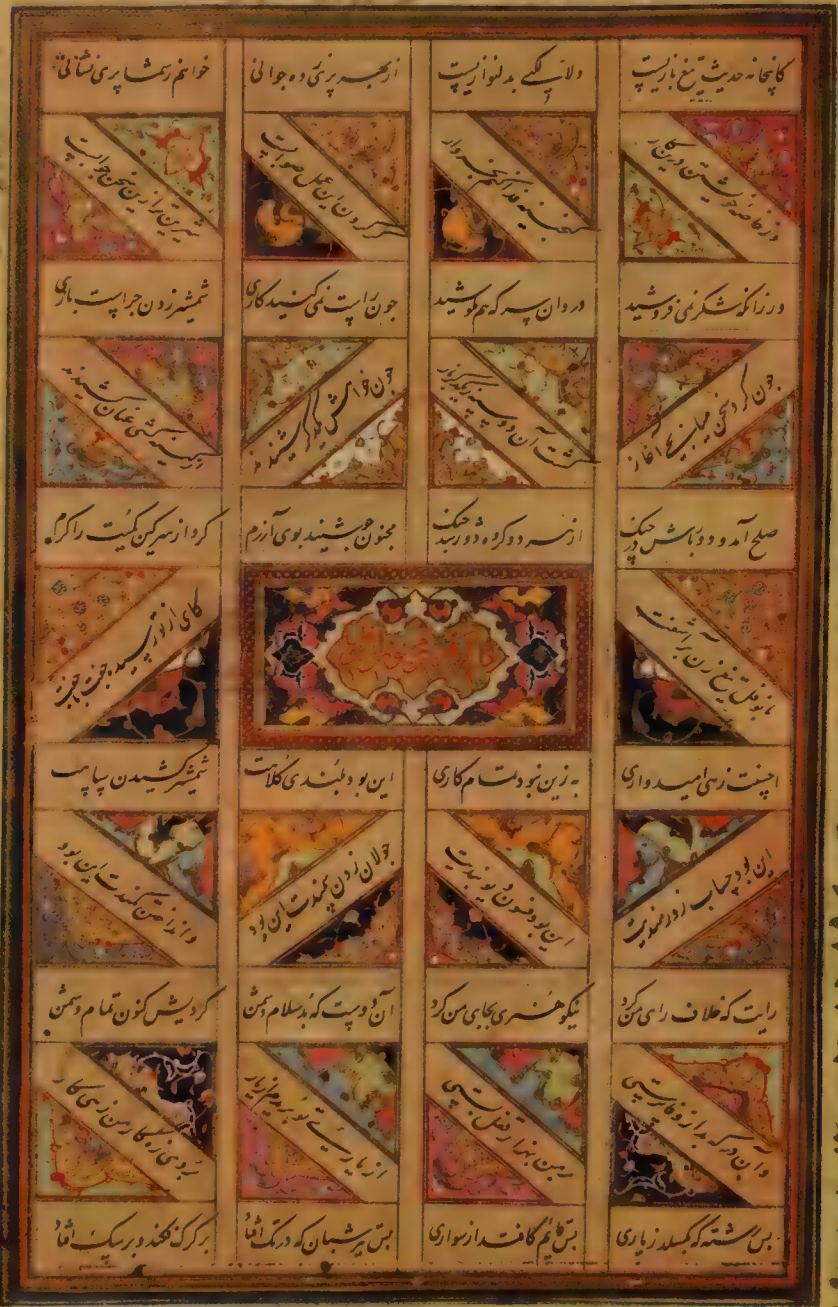 کاینجا نه حدیث تیغ بازیست
دلالگیی بدلنوازیست
از بهر پری زده جوانی
خواهم ز شما پری نشانی
وز خاصه خویشتن درین کار
گنجینه فدا کنم بخروار
گر کردن این عمل صوابست
شیرین تر ازین سخن جوابست
ور زانکه شکر نمی فروشید
در دان سرکه هم مکوشید
چون راست نمی کنید کاری
شمشیر زدن چراست باری
چون کرد سخن میانجی آغاز
گشت آن دو سپه ز یکدگر باز
چون خواهش یکدگر شنیدند
کینه کشی عنان کشیدند
صلح آمد و دورباش در چنگ
از هر دو گروه دور شد جنگ
مجنون چو شنید بوی آزرم
کرد از سر کین کمیت را گرم
با نوفل تیغ زن برآشفت
کای از تو رسیده جفت با جفت
احسنت زهی امیدواری
به زین نبود تمام کاری
این بود بلندی کلاهت
شمشیر کشیدن سپاهت
این بود حساب زورمندیت
این بود فسون دیوبندیت
جولان زدن سمندت این بود
وانداختن کمندت این بود
رایت که خلاف رای من کرد
نیکو هنری بجای من کرد
آن دوست که بد سلام دشمن
کردیش کنون تمام دشمن
وآن در که بد از وفا پرستی
بر من بهزار قفل بستی
از یاری تو بریدم ای یار
بردی زه کار من زهی کار
بس رشته که بگسلد ز یاری
بس قایم کافتد از سواری
بس تیر شبان که در تک افتاد
بر گرگ فکند و بر سگ افتاد